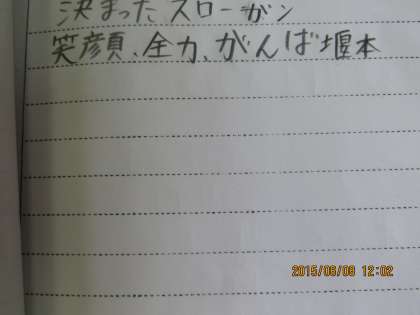 決まったスローガン
笑顔、全力、がんば堰本
2015/06/08 12:02